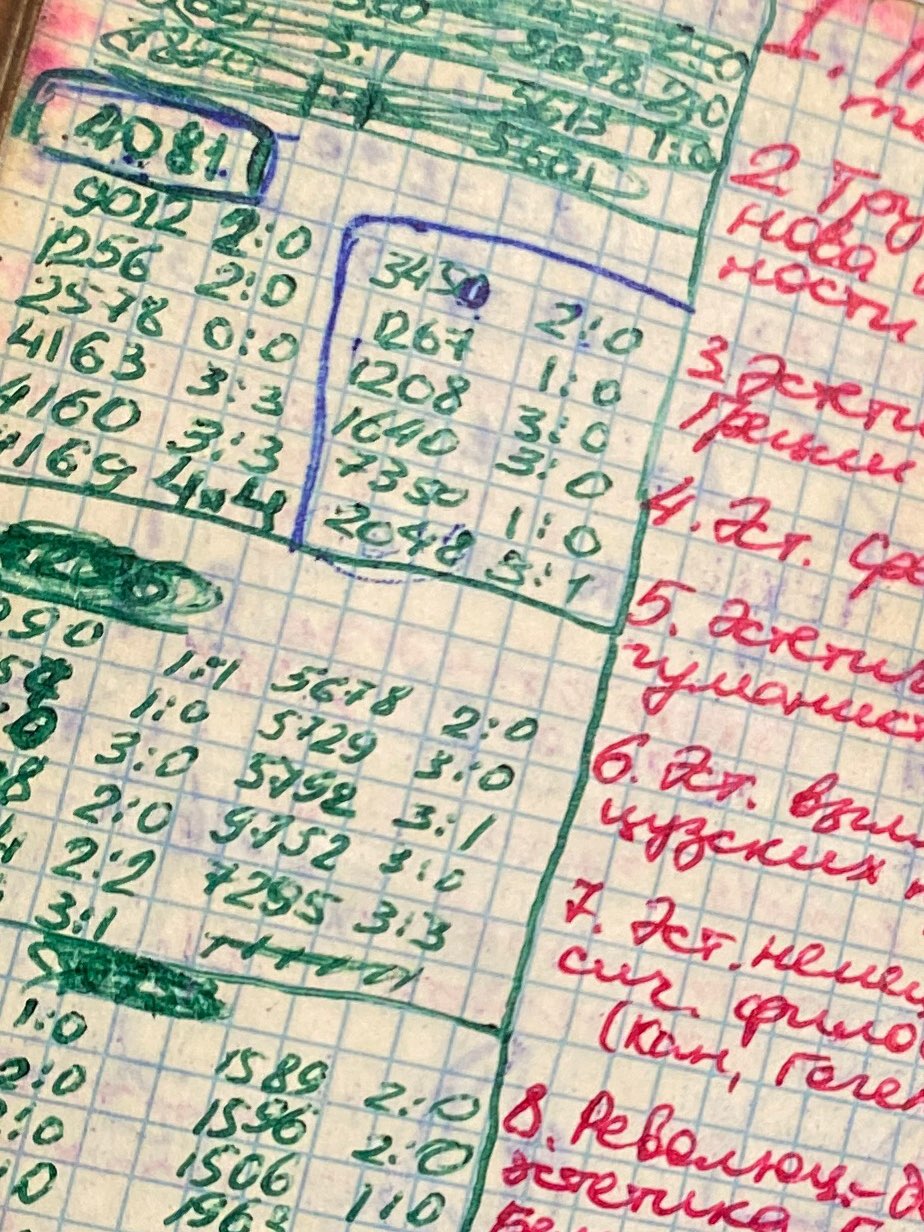 5:1
9078 2:0
5613 1:0
5601
4081
9012 2:0
1256 2:0
2578 0:0
4163 3:3
4160 3:3
4169 4×4
3450 2:0
1267 1:0
1208 3:0
1640 3:0
7350 1:0
2048 3:1
290 1:1
1:0
3:0
2:0
2:2
3:1
5678 2:0
5729 3:0
5792 3:1
9752 3:0
7295 3:3
1:0
2:0
2:0
1589 2:0
1596 2:0
1506 1:0
1963
1.
2. Тру
нова
ности
3. Эстети
Греции
4. Эст. сре
5. Эстетик
гуманист
6. Эст. взгл
цузских
7. Эст. неме
сич. фило
(Кант, Геге
8. Революц.-д
эстетика
Бел